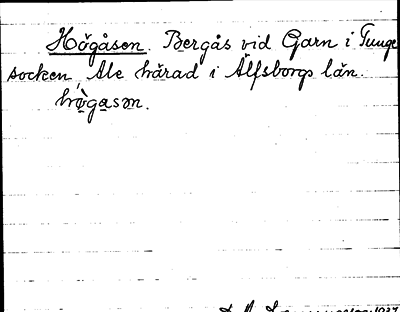 Högåsen. Bergås vid Garn i Tunge
socken, Ale härad i Älfsborgs län.
hö̀gasən.
1937